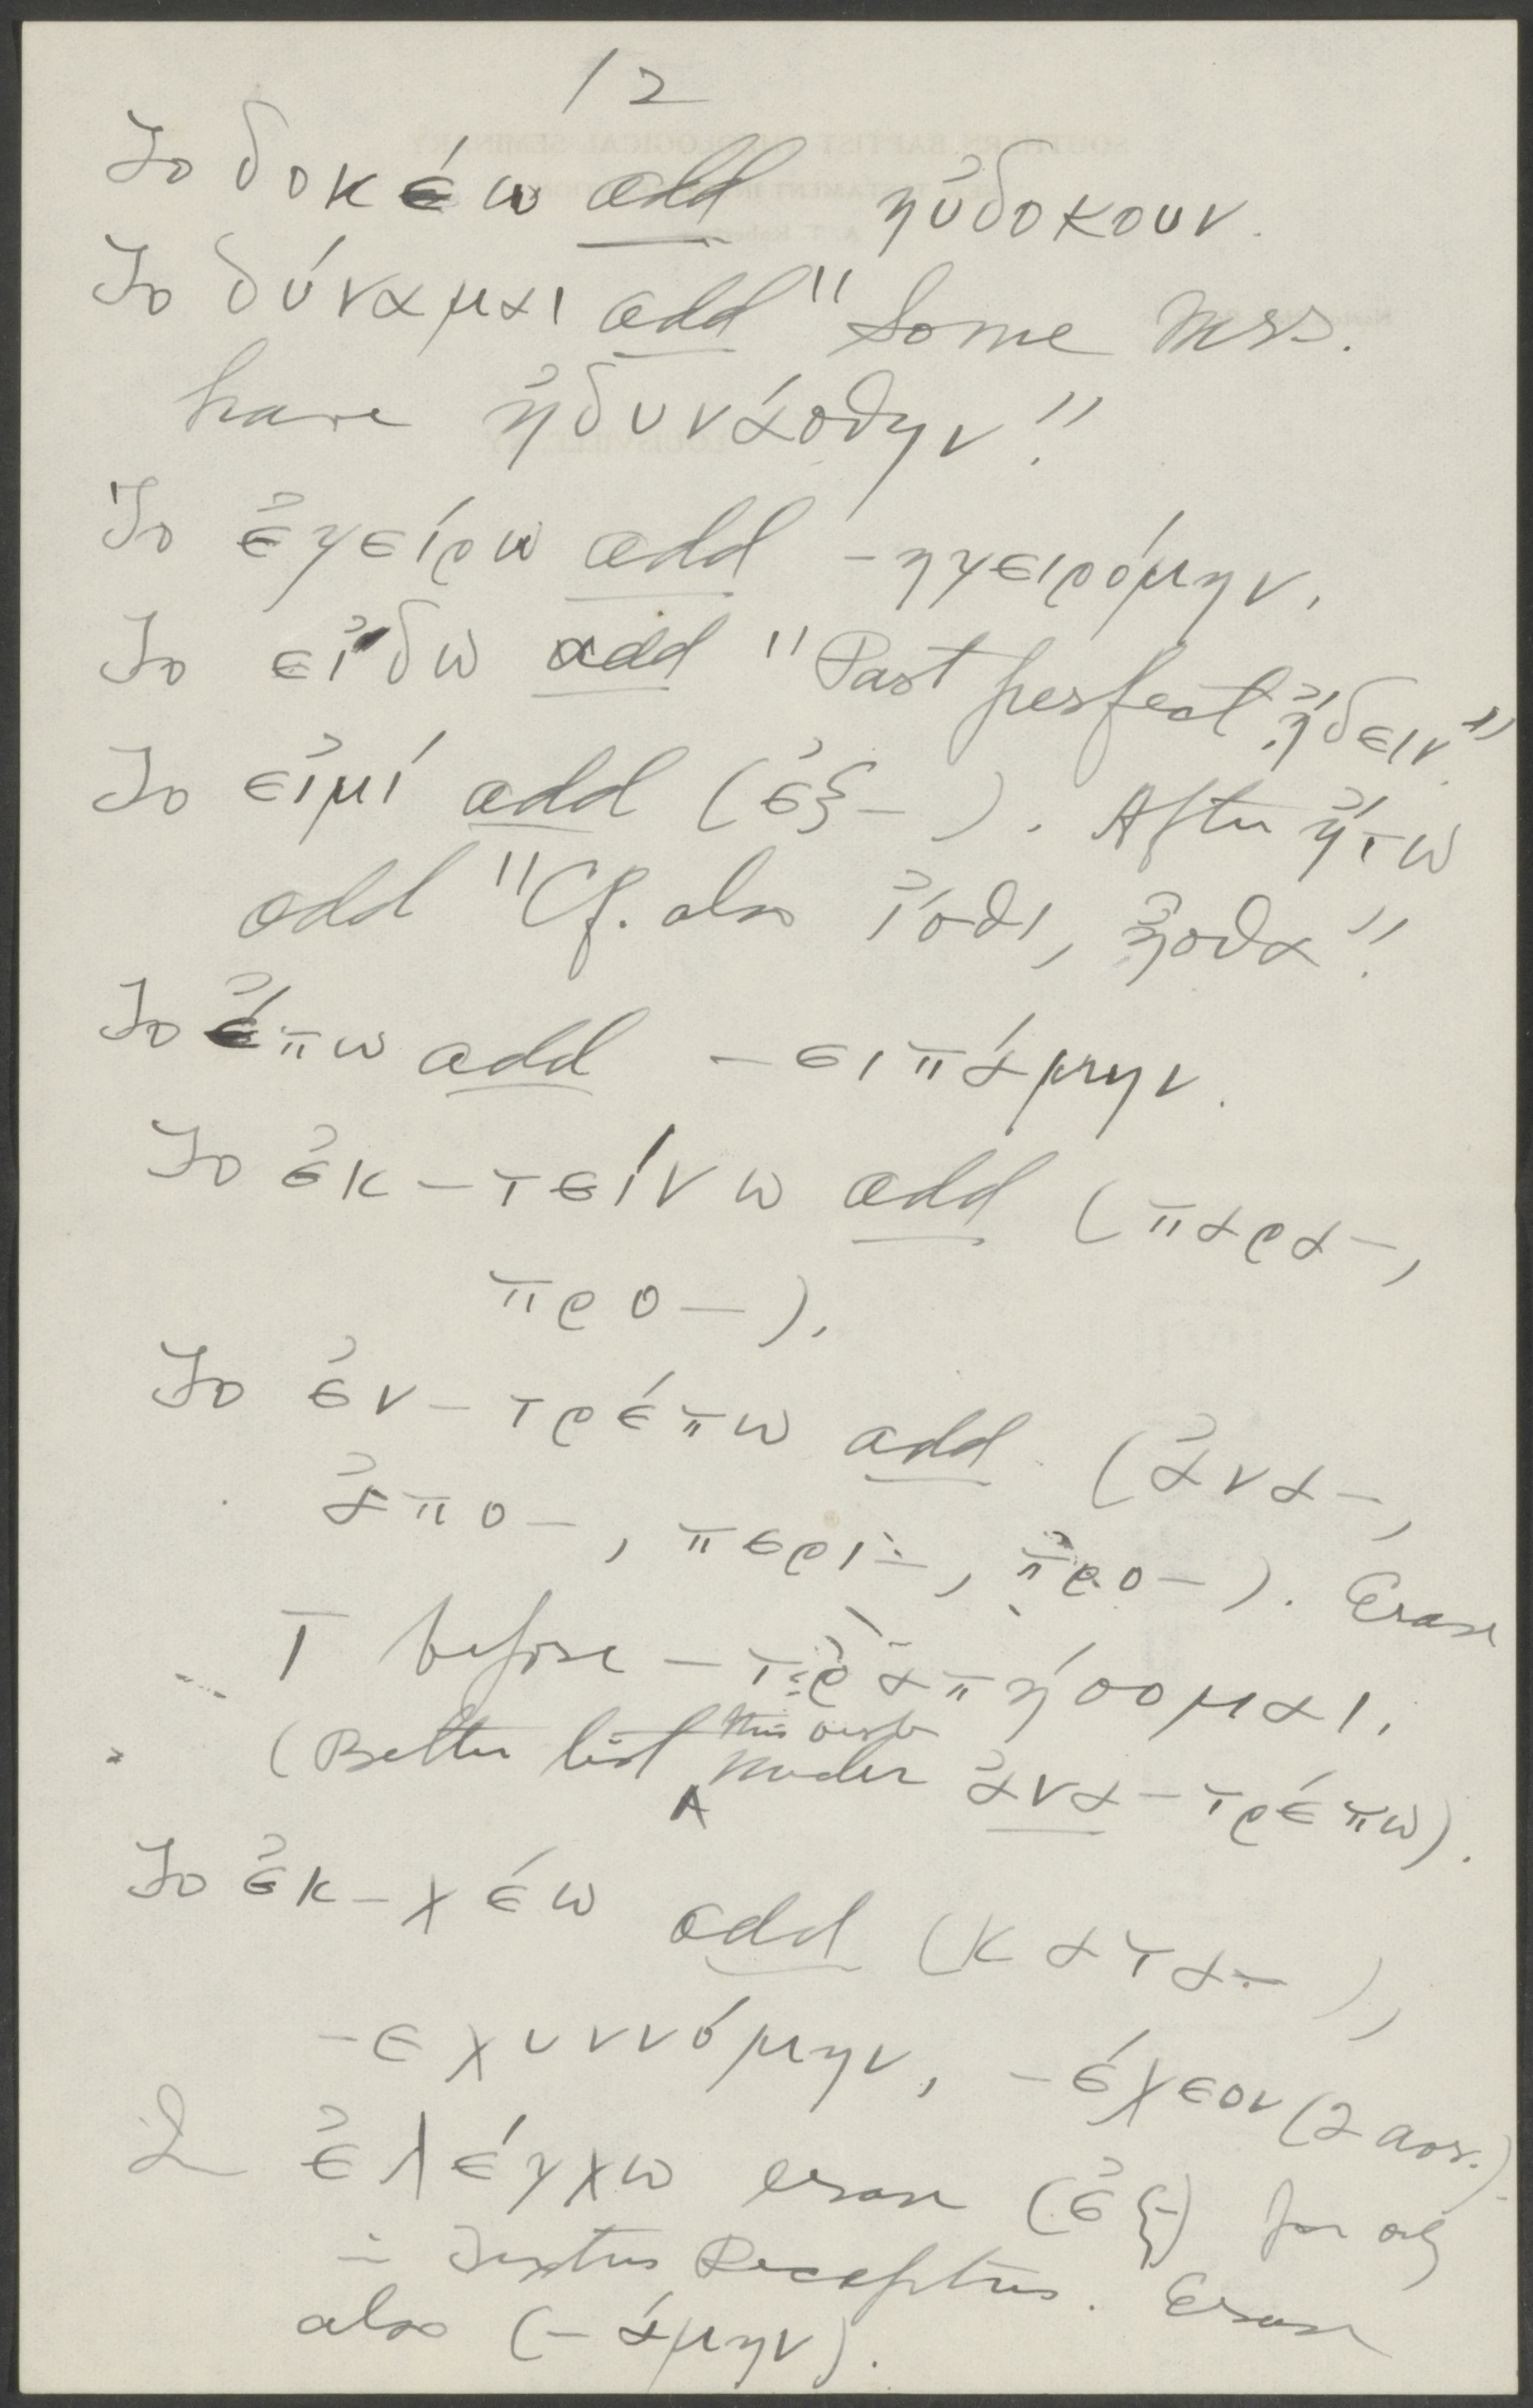 12
To δοκέω add ηὐδοκουν.
To δύναμαι add "Some Mss.
have ἠδυνάσθην".
To ἐγείρω add -ηγειρόμην.
To εἴδω add "Past perfect ᾔδειν".
To εἰμί add (ἐξ-). After ἤτω
add "Cf. also ἴσθι, ἦσθα".
To ἔπω add -ειπάμην.
To ἐκ-τείνω add (παρα-,
προ-).
To ἐν-τρέπω add (ἀνα-,
ἀπο-, περι-, προ-). Erase
τ before -τραπήσομαι.
(Better list this verb under ἀνα-τρέπω).
To ἐκ-χέω add (κατα-),
-εχυννόμην, -έχεον (2 aor.).
In ἐλέγχω erase (ἐξ-) for only
in Textus Receptus. Erase
also (-άμην).